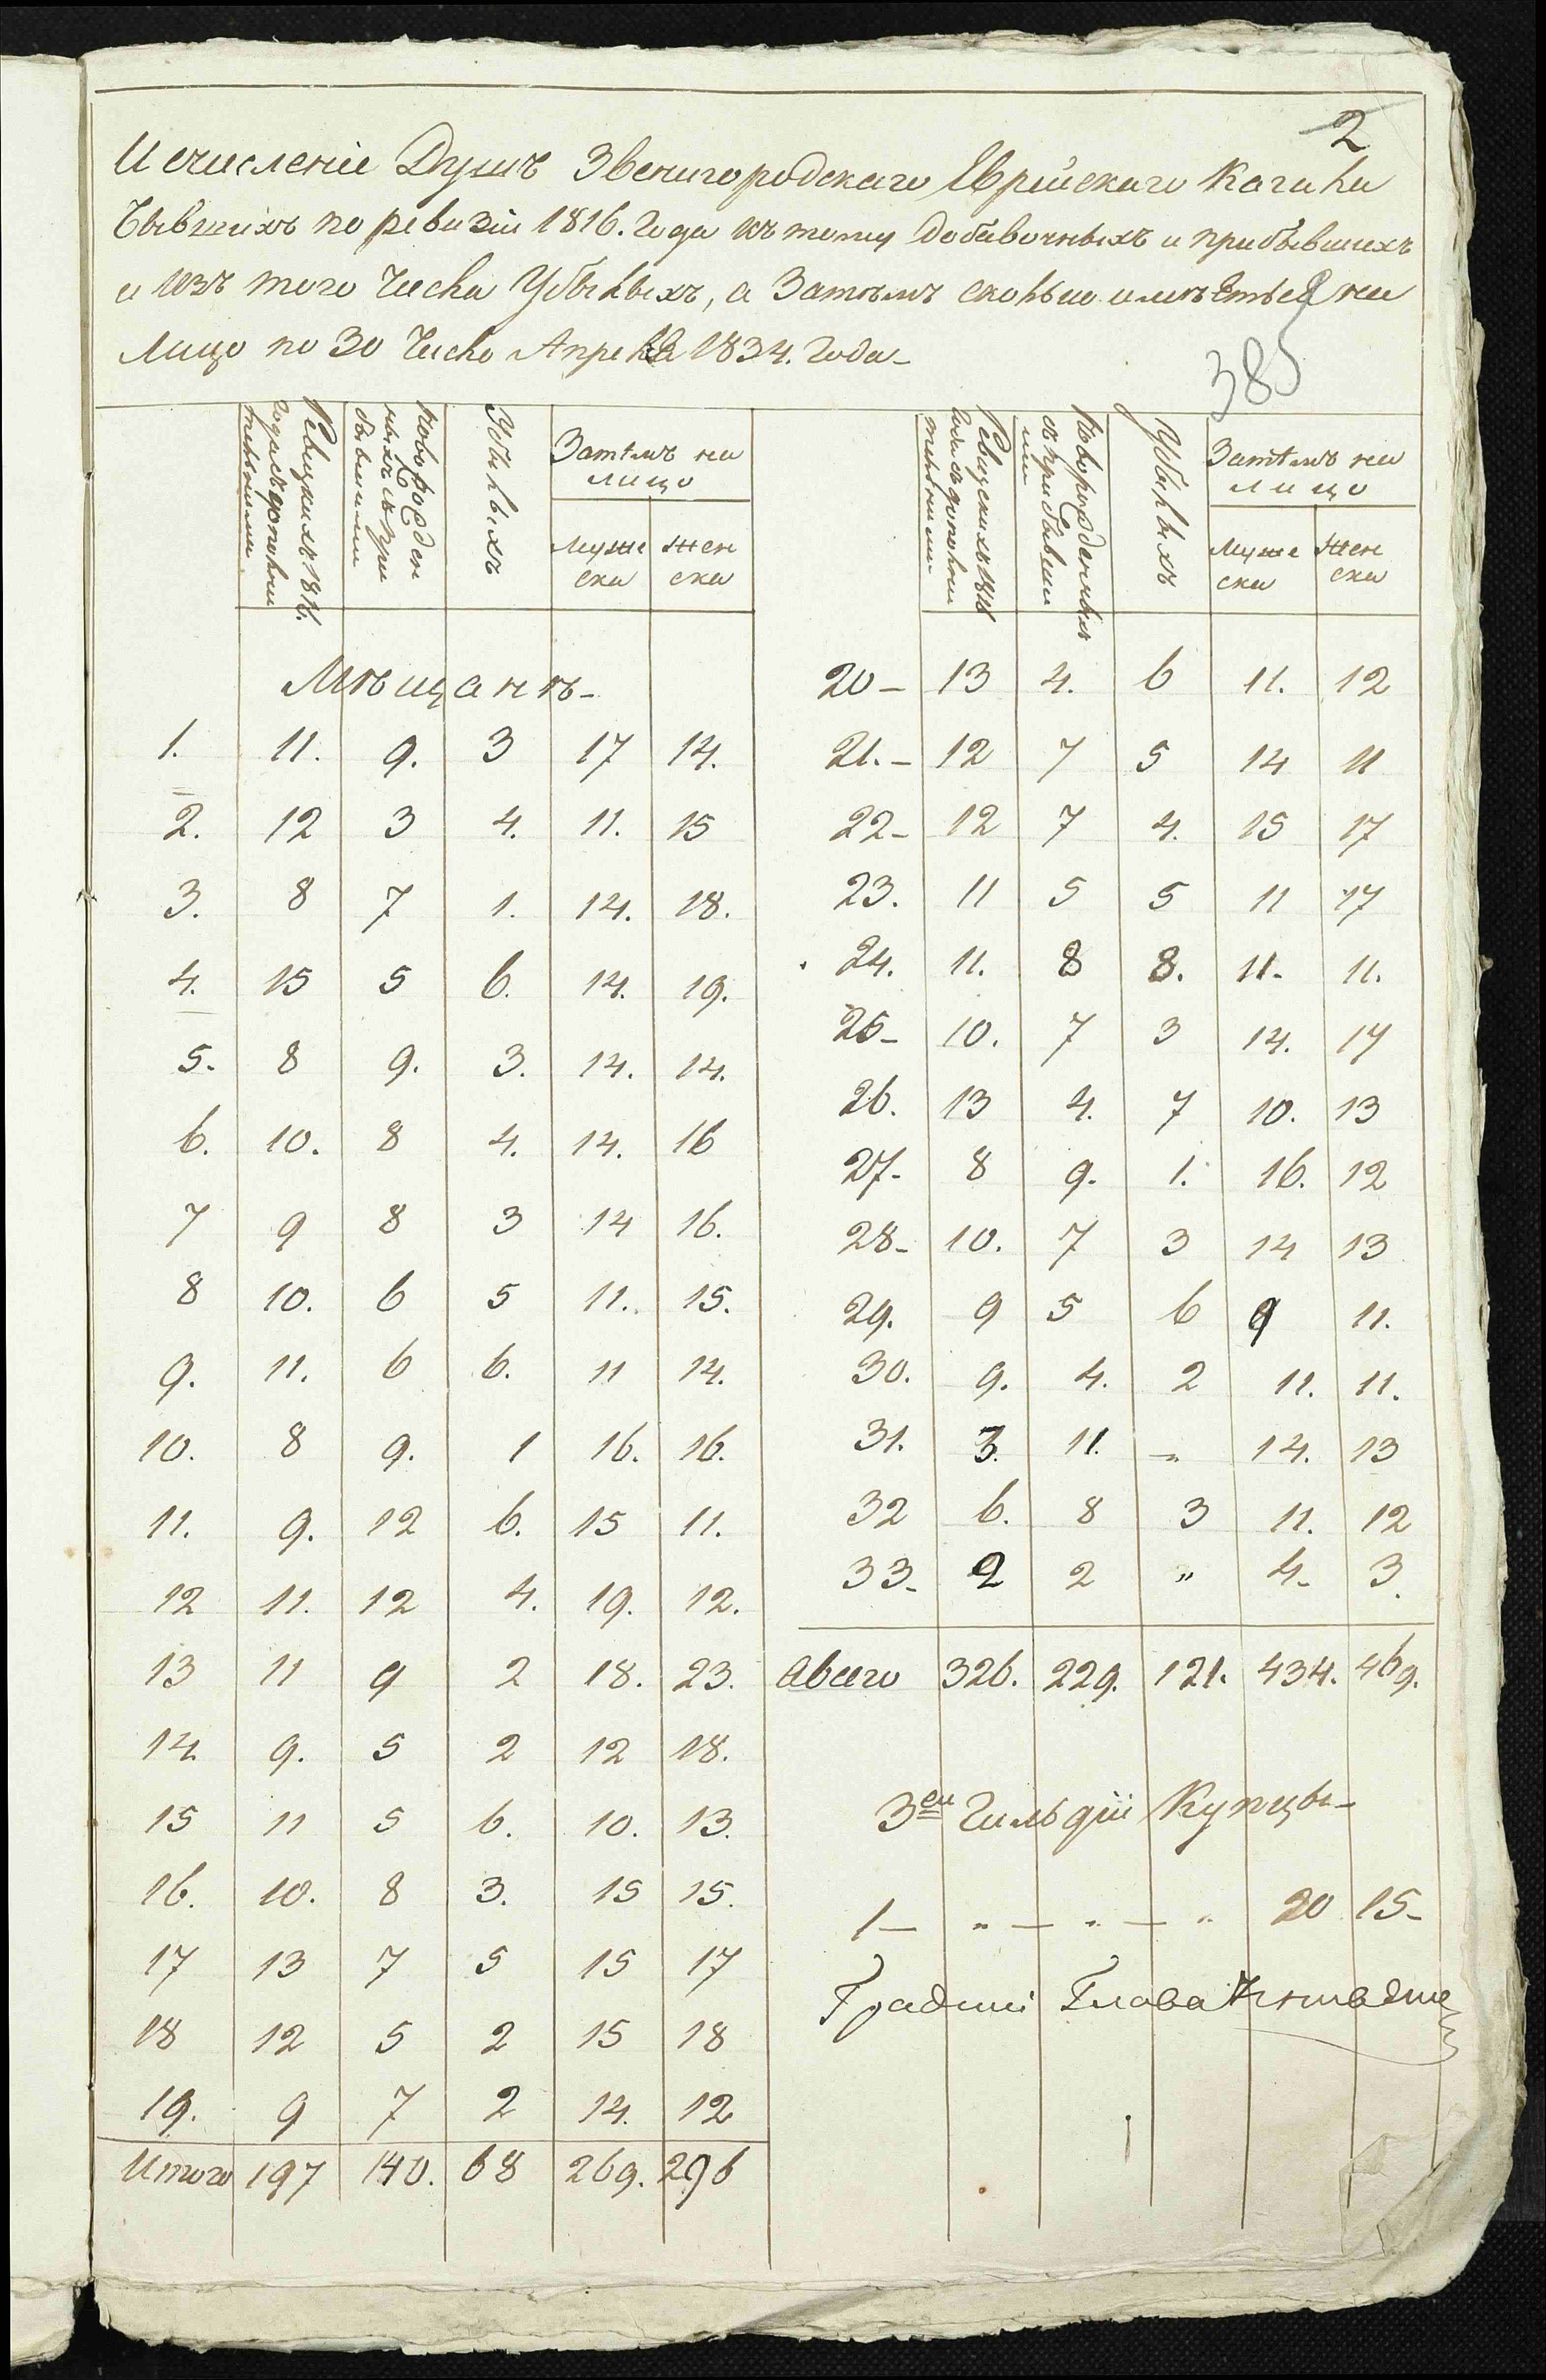 2
Исчисленіе Душъ Звенигородскаго Еврейскаго Кагала
бывшихъ по ревизіи 1816. Года къ тому добавочныхъ и прибывшихъ
и изъ того числа Убылыхъ, а Затѣмъ сколько имѣетъся на
Лицо по 30 Число Апреля 1834. Года_
385
Ревизкихъ 1816.
года съ дополни
тельными
Новорожден
ныхъ съ при
бывшими
Убылыхъ
Затѣмъ на
лицо
Муже
ска
Жен
ска
Ревизскихъ 1816
года съ дополни
тельными
Новорожденныхъ
съ прибывши
ми
Убылыхъ
Затѣмъ на
лицо
Муже
ска
Жен
ска
Мѣщанъ_
1. 11. 9. 3 17 14.
2. 12 3 4. 11. 15
3. 8 7 1. 14. 18.
4. 15 5 6. 14. 19.
5. 8 9. 3. 14. 14.
6. 10. 8 4. 14. 16
7 9 8 3 14 16.
8 10. 6 5 11. 15.
9. 11. 6 6. 11 14.
10. 8 9. 1 16. 16.
11. 9. 12 6. 15 11.
12 11. 12 4. 19. 12.
13 11 9 2 18. 23.
14. 9. 5 2 12 18.
15 11 5 6. 10. 13.
16. 10. 8 3. 15 15.
17 13 7 5 15 17
18 12 5 2 15 18
19. 9 7 2 14. 12
Итого 197 140. 68 269. 296
20_ 13 4. 6 11. 12
21._ 12 7 5 14 11
22_ 12 7 4. 15 17
23. 11 5 5 11 17
24. 11. 8 8. 11. 11.
25_ 10. 7 3 14. 17
26. 13 4. 7 10. 13
27. 8 9. 1. 16. 12
28_ 10. 7 3 14 13
29. 9 5 6 9 11.
30. 9. 4. 2 11. 11.
31. 3. 11. „ 14. 13
32 6. 8 3 11. 12
33_ 2 2 „ 4_ 3.
Авсего 326. 229. 121. 434. 469.
3ей Гильдіи Купцы_
1_ „ _ „ _ „ 20 15_
Градскій Глава